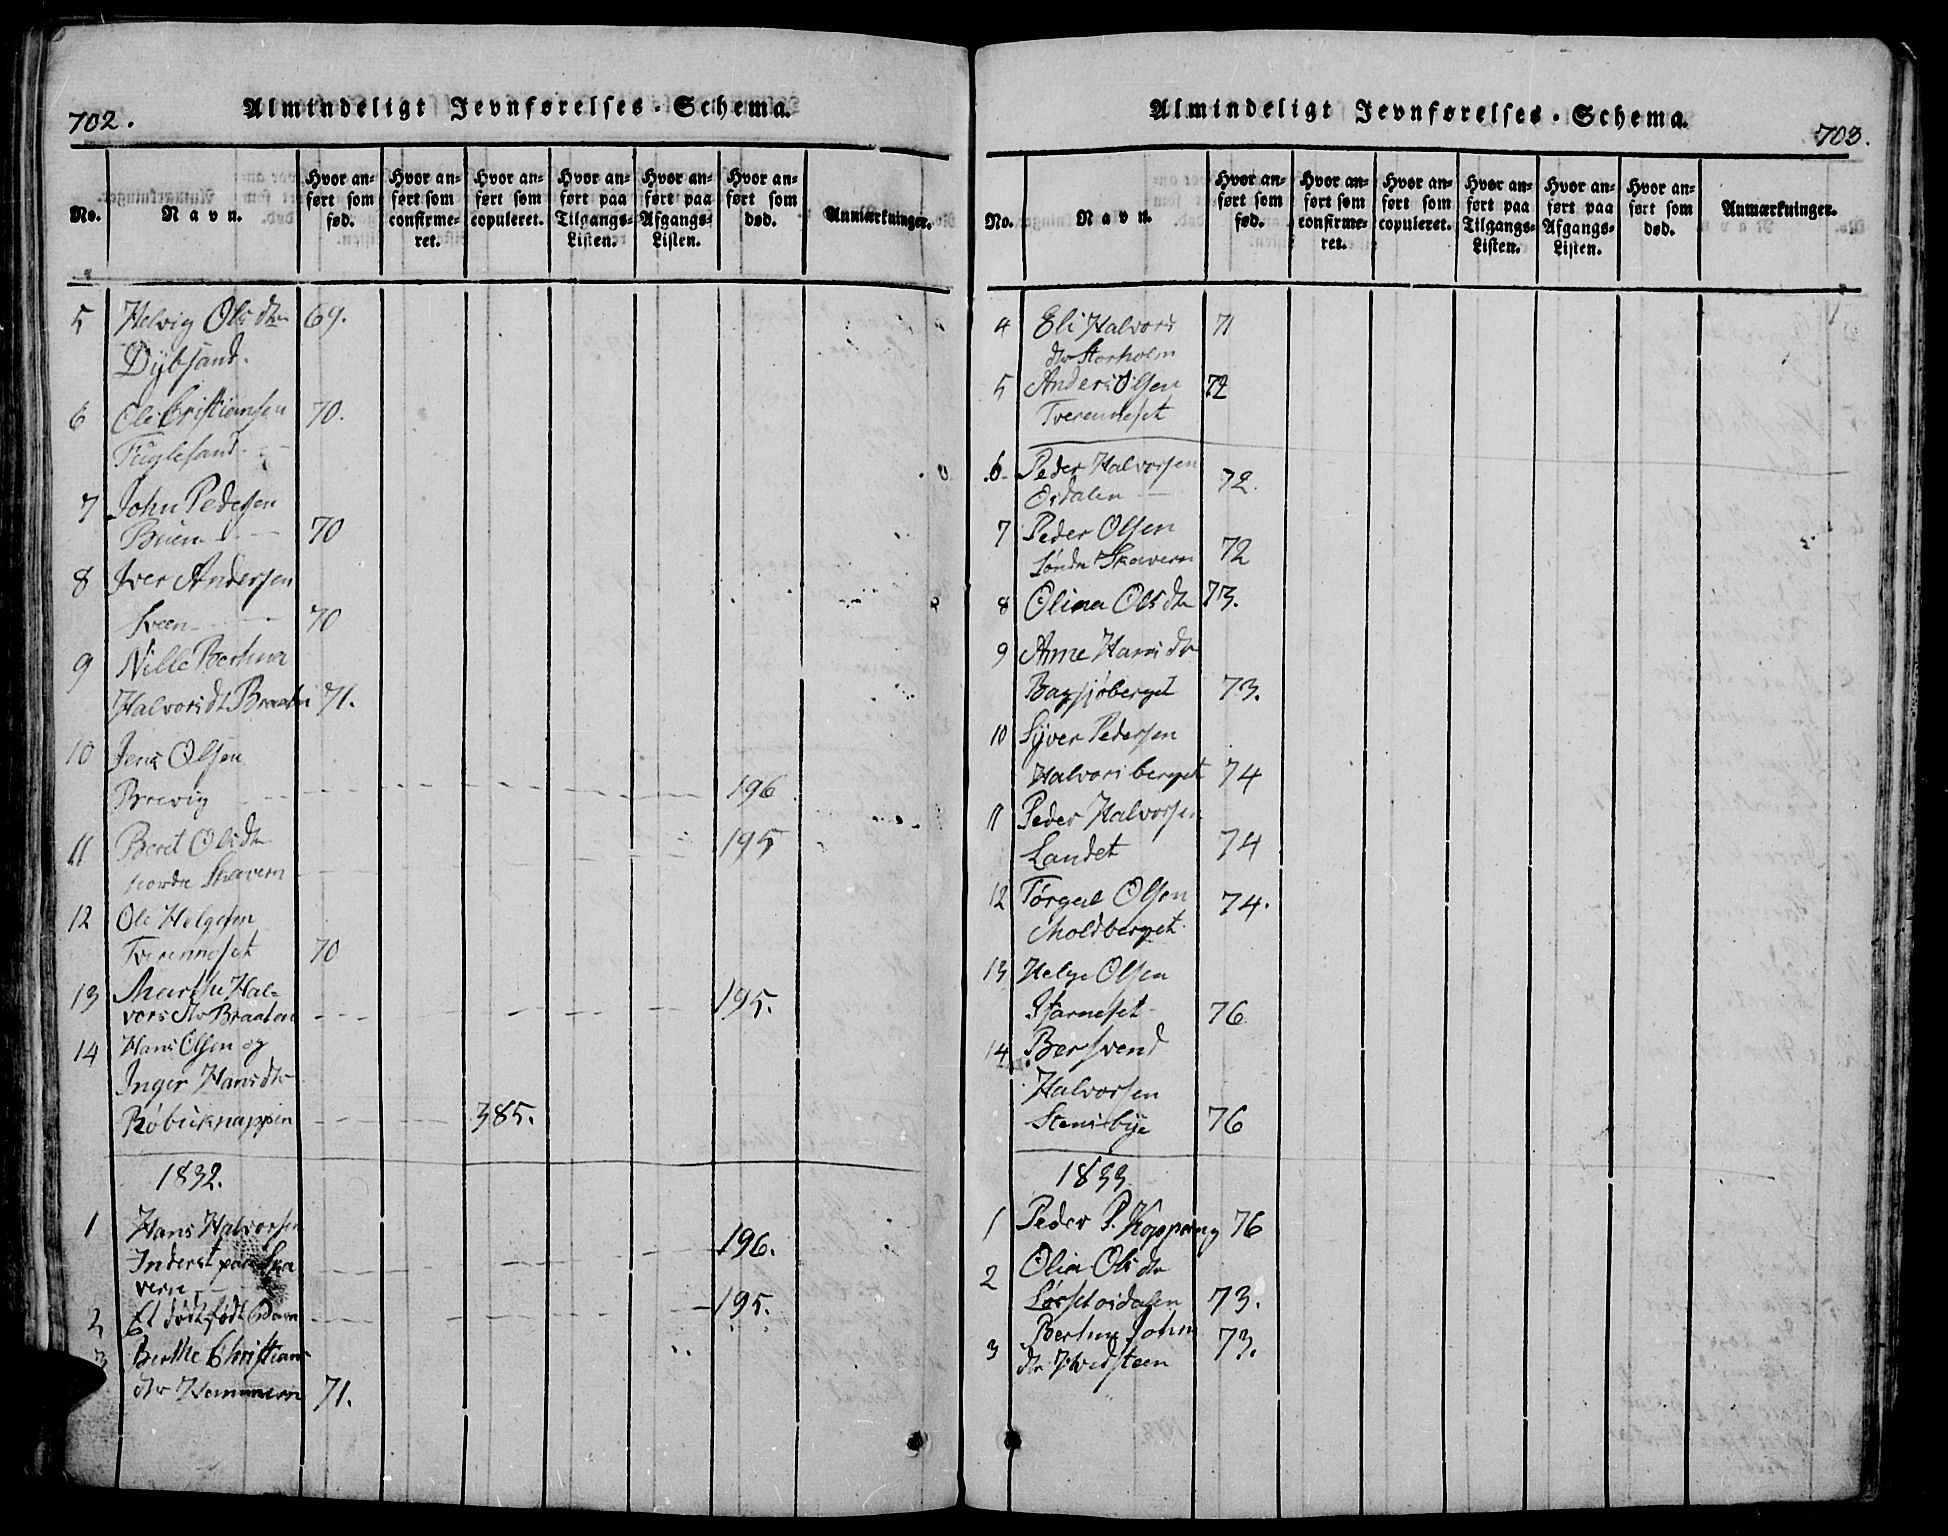 702.
Almindeligt Jevnførelses-Schema.
No.
Navn.
Hvor an-
ført som
fød.
Hvor an-
ført som
confirme-
ret.
Hvor an-
ført som
copuleret.
Hvor an-
ført paa
Tilgangs-
Listen.
Hvor an-
ført paa
Afgangs-
Listen.
Hvor an-
ført som
død.
Anmærkninger.
5 Helvig Olsdtr 69.
Dybsand.
6 Ole Cristiansen 70.
Fuglesand
7 John Pedersen
Buen 70
8 Iver Andersen
Sveen 70
9 Nille Berthea
Halvorsdt Braaten 71.
10 Jens Olsen
Brevig 196
11 Beret Olsdtr 195
nordre Skavern
12 Ole Helgesen
Tverrenneset 70
13 Marthe Hal-
vorsdtr Braaten 195.
14 Hans Olsen og
Inger Hansdtr
Røbuknappen 385.
1832.
1 Hans Halvorsen
Inderst paa Ska 196.
vern
2 Et dødfødt Barn 195.
3 Berthe Christians
dtr Hammeren 71.
Almindeligt Jevnførelses-Schema.
703.
No.
Navn.
Hvor an-
ført som
fød.
Hvor an-
ført som
confirme-
ret.
Hvor an-
ført som
copuleret.
Hvor an-
ført paa
Tilgangs-
Listen.
Hvor an-
ført paa
Afgangs-
Listen.
Hvor an-
ført som
død.
Anmærkninger.
4 Eli Halvors 71
dtr Storholm
5 Anders Olsen 72
Tverenneset
6 Peder Halvorsen
Osdalen 72.
7 Peder Olsen
søndr Skavern 72
8 Olina Olsdtr 73.
9 Anne Hansdtr
Bagsjøberget 73.
10 Syver Pedersen
Halvorsberget 74
11 Peder Halvorsen
Landet 74
12 Tørgal Olsen 74.
Moldberget
13 Helge Olsen
Starneset 76
14 Bersvend
Halvorsen
Stensbye 76
1833
1 Peder P. Koppang 76
2 Olia Olsdtr
Løssetosdalen 73.
3 Berthe Johns 73.
dtr Hvidsteen